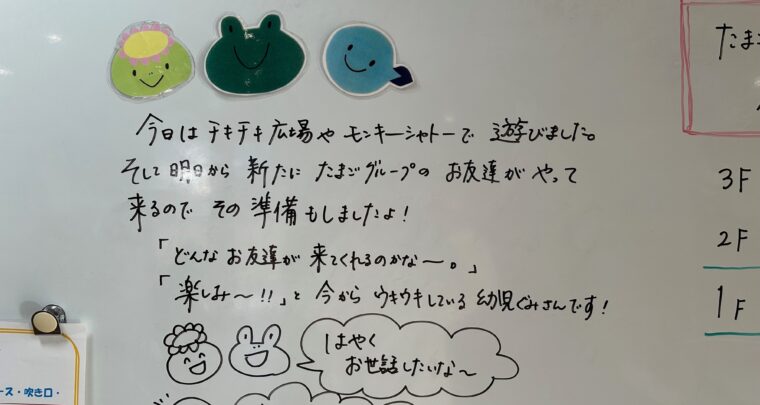 今日は チキチキ広場や モンキーシャトーで 遊びました。
そして 明日から 新たに たまごグループの お友達が やって
来るので その 準備もしましたよ!
「どんな お友達が 来てくれるのかな〜。」
「楽しみ〜!!」と 今から ウキウキしている 幼児ぐみさんです!
はやく
お世話したいな〜
たまご
3F
2F
1F
ース・吹き口・